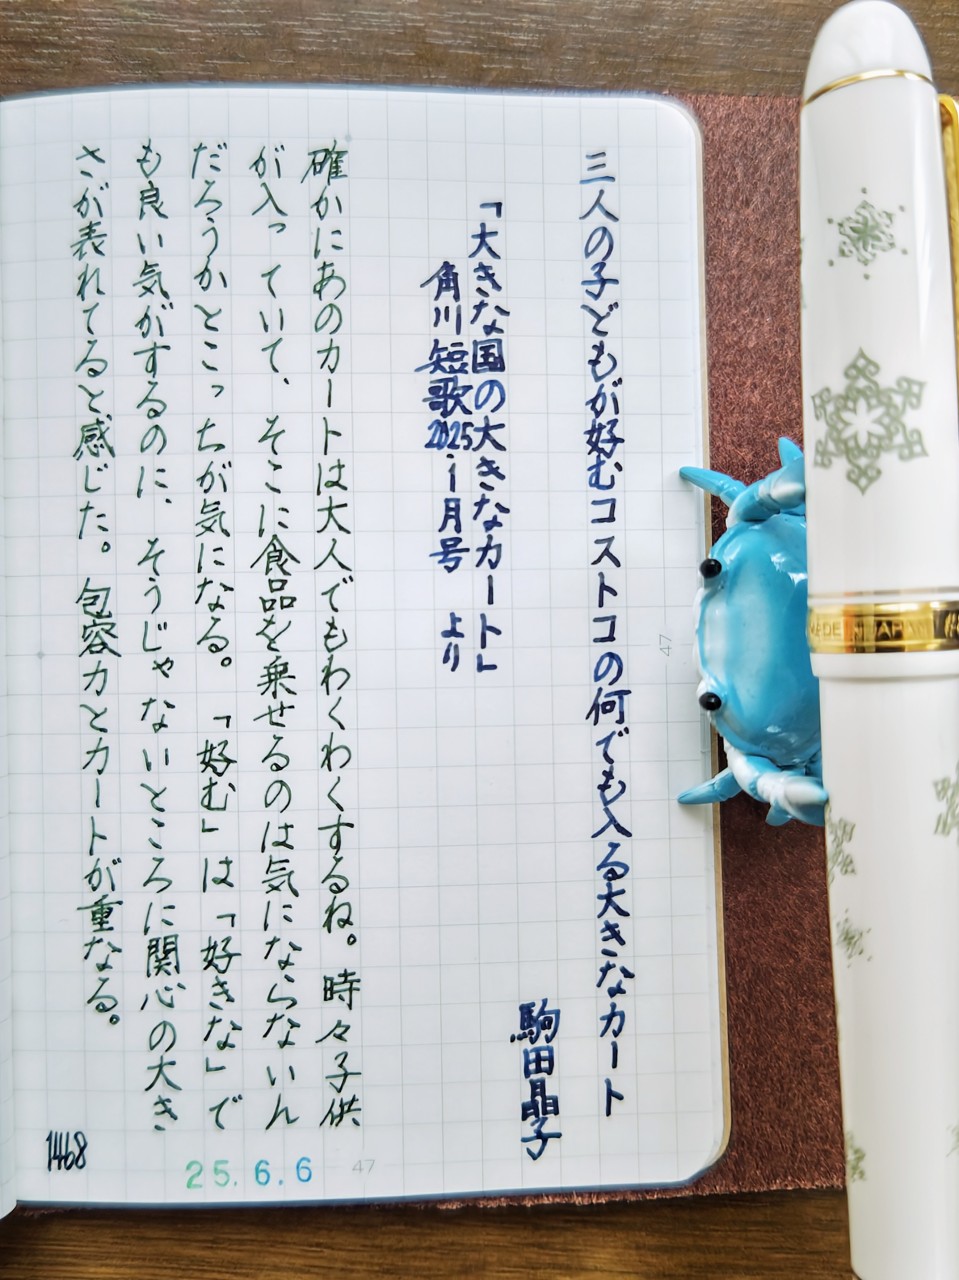 三人の子どもが好むコストコの何でも入る大きなカート
駒田晶子
「大きな国の大きなカート」
角川短歌2025.1月号 より
確かにあのカートは大人でもわくわくするね。時々子供
が入っていて、そこに食品を乗せるのは気にならないん
だろうかとこっちが気になる。「好む」は「好きな」で
も良い気がするのに、そうじゃないところに関心の大き
さが表れてると感じた。包容力とカートが重なる。
1468
25.6.6
47
47
MADE IN JAPAN